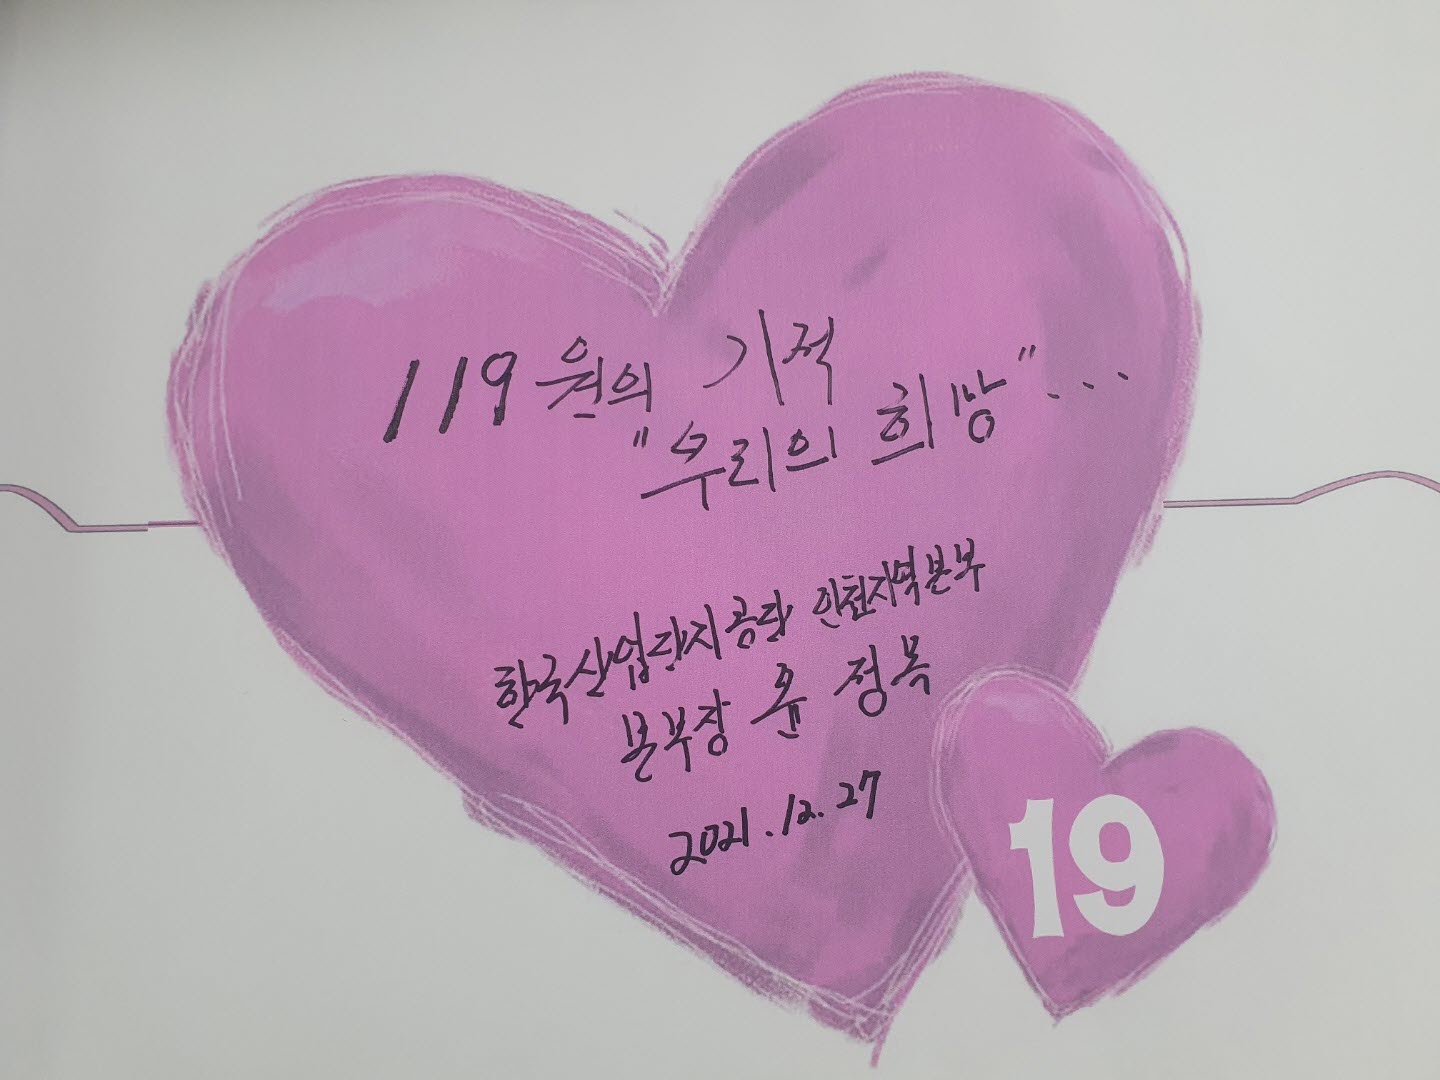 119원의 기적
"우리의 희망"...
한국산업단지공단 인천지역본부
본부장 윤정목
2021.12.27
19